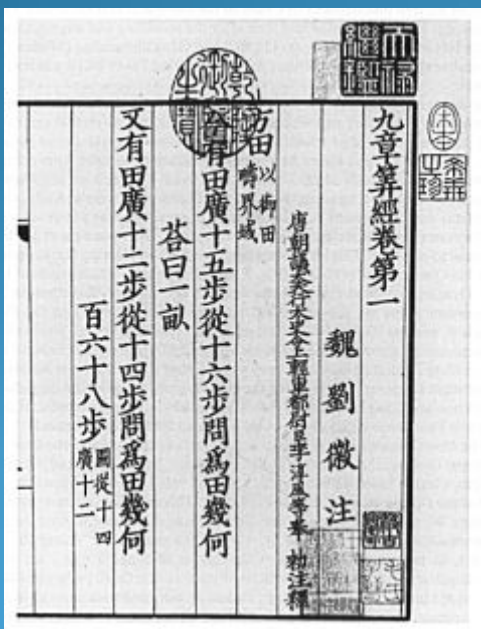 九章筭經卷第一
魏劉徽注
唐朝議大夫行太史令上輕車都尉臣李淳風等奉 勑注釋
方田以御田疇界域
今有田廣十五步從十六步問爲田幾何
荅曰一畝
又有田廣十二步從十四步問爲田幾何
一百六十八步圖從十四廣十二